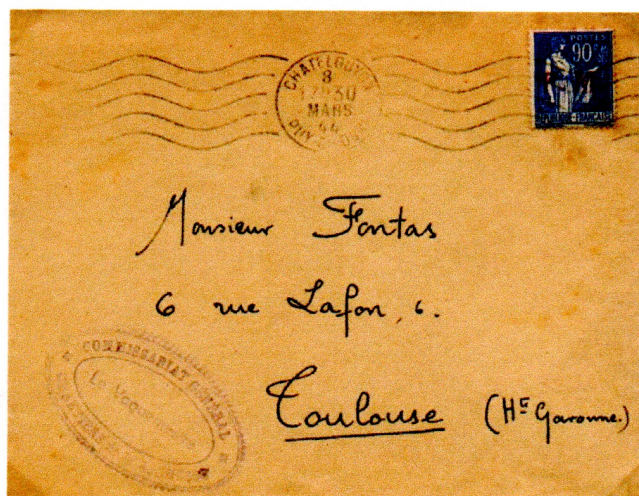 CHATELGUYON
8
MARS
44
PUY
POSTES
90
REPUBLIQUE FRANCAISE
Monsieur Fontas
6 rue Lafon, 6.
Toulouse (Hte Garonne.)
COMMISSARIAT GENERAL
Le